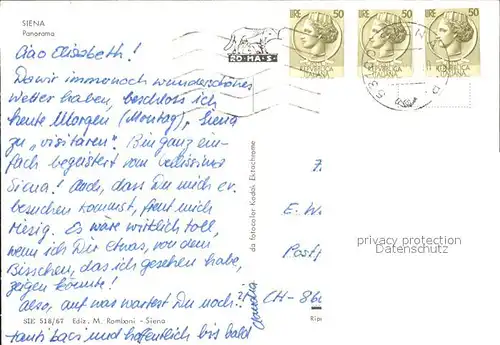 SIENA
Panorama
LIRE 50
LIRE 50
LIRE 50
ROMA-S.
Ciao Elisabeth!
Da wir immer noch wunderschönes
Wetter haben, beschloss ich
heute Morgen (Montag), Siena
zu „visitaren“. Bin ganz ein-
fach begeistert vom bellissima
Siena! Auch, dass Du mich
besuchen kommst, freut mich
riesig. Es wäre wirklich toll,
wenn ich Dir etwas, von dem
Bisschen, das ich gesehen habe,
zeigen könnte!
Also, auf was wartest Du noch?
tanti baci und hoffentlich bis bald
Claudia
da fotocolor Kodak Ektachrome
E. W
Postf
CH-860
privacy protection
Datenschutz
SIE 518/67 Ediz. M. Romboni - Siena
Ripr